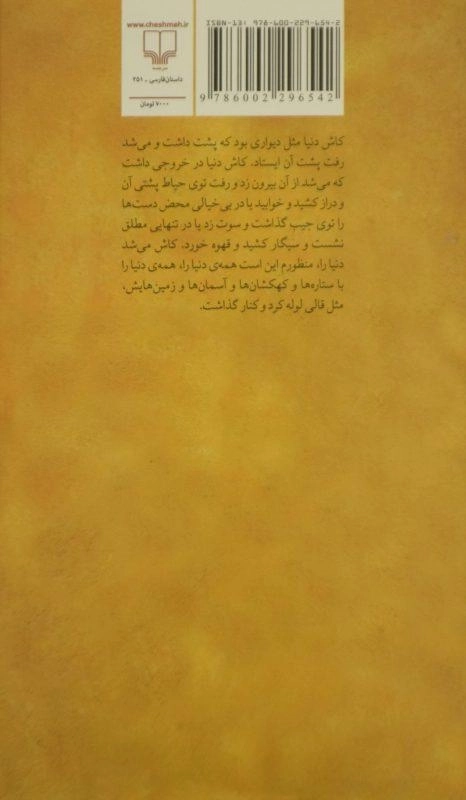 www.cheshmeh.ir
نشرچشمه
داستان فارسی ـ ۲۵۱
۷۰۰۰ تومان
ISBN-13: 978-600-229-654-2
9 786002 296542
کاش دنیا مثل دیواری بود که پشت داشت و می‌شد
رفت پشت آن ایستاد. کاش دنیا در خروجی داشت
که می‌شد از آن بیرون زد و رفت توی حیاط پشتی آن
و دراز کشید و خوابید یا در بی‌خیالی محض دست‌ها
را توی جیب گذاشت و سوت زد یا در تنهایی مطلق
نشست و سیگار کشید و قهوه خورد. کاش می‌شد
دنیا را، منظورم این است همه‌ی دنیا را، همه‌ی دنیا را
با ستاره‌ها و کهکشان‌ها و آسمان‌ها و زمین‌هایش،
مثل قالی لوله کرد و کنار گذاشت.